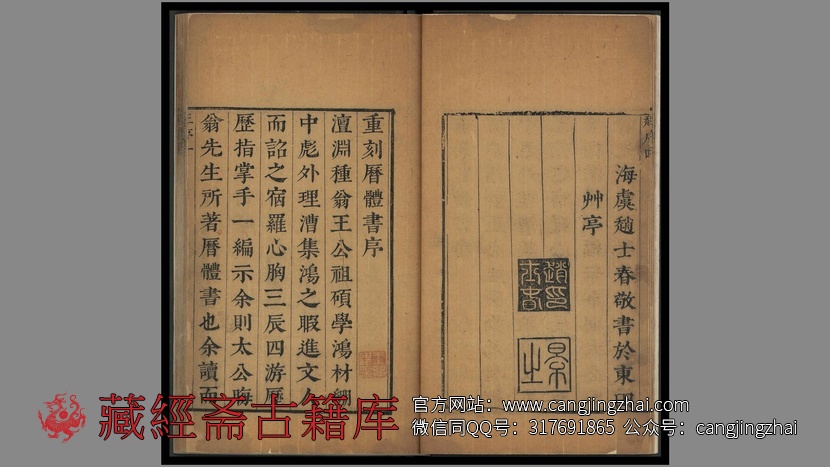 海虞趙士春敬書於東
艸亭
重刻曆體書序
澶淵種翁王公祖碩學鴻材弸
中彪外理漕集鴻之暇進文人
而詔之宿羅心胸三辰四游歷
歷指掌手一編示余則太公晦
翁先生所著曆體書也余讀而
藏經斋古籍库
官方网站：www.cangjingzhai.com
微信同QQ号：317691865 公众号：cangjingzhai